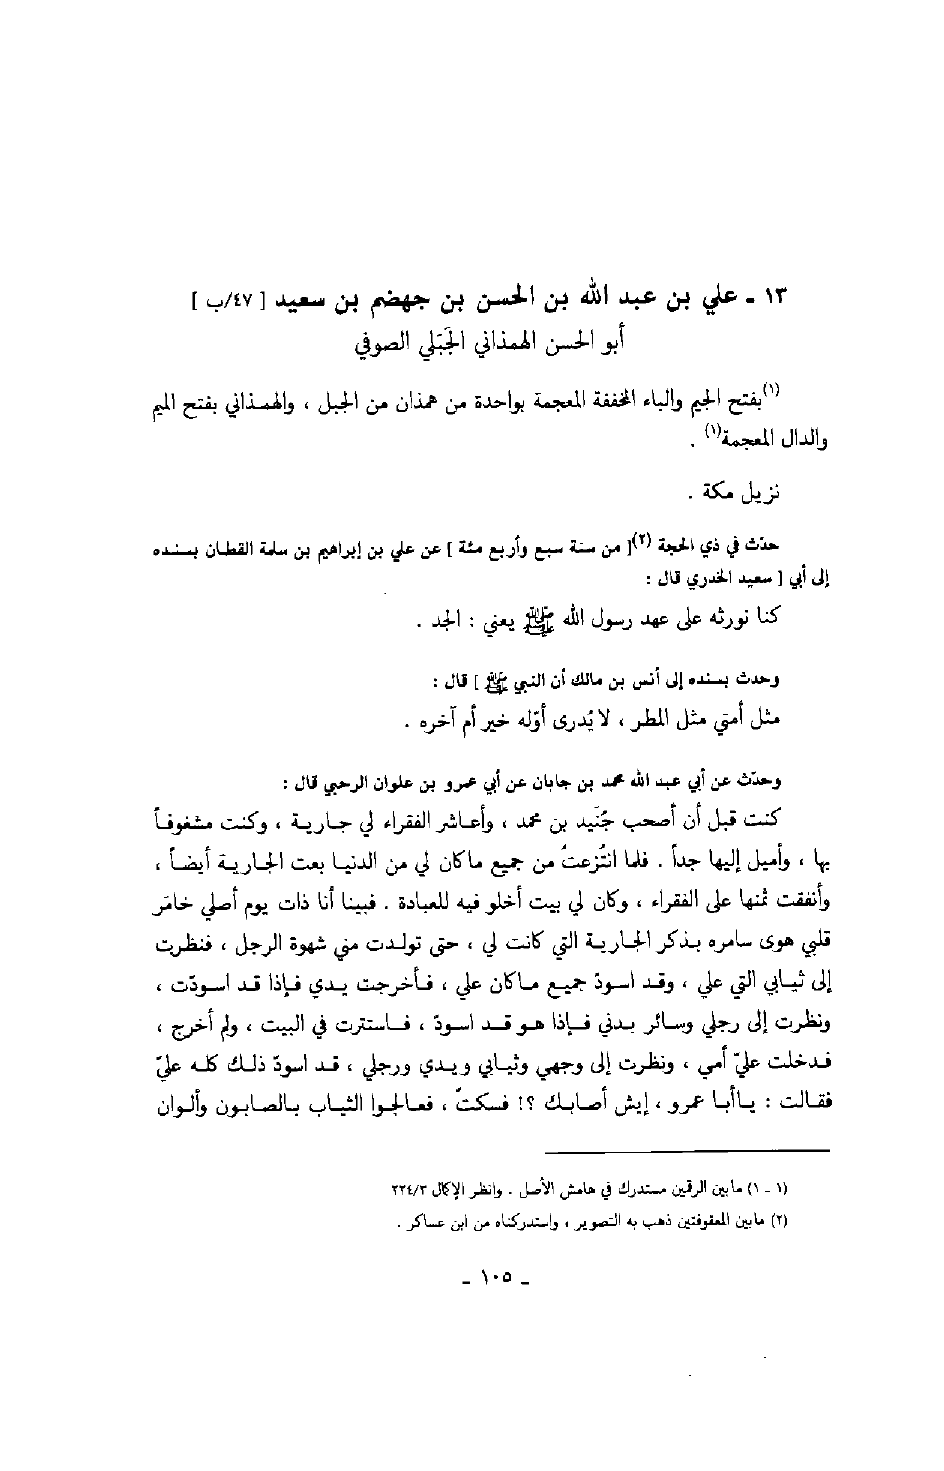 ١٣ - علي بن عبد الله بن الحسن بن جهضم بن سعيد [ ٤٧/ب ]
أبو الحسن الهمذاني الجَبَلي الصوفي
(١)بفتح الجيم والباء المخففة المعجمة بواحدة من همذان من الجبل ، والهمذاني بفتح الميم
والدال المعجمة(١) .
نزيل مكة .
حدّث في ذي الحجة (٢)[ من سنة سبع وأربع مئة ] عن علي بن إبراهيم بن سلمة القطان بسنده
إلى أبي [ سعيد الخدري قال :
كنا نورثه على عهد رسول الله ﷺ يعني : الجد .
وحدث بسنده إلى أنس بن مالك أن النبي ﷺ ] قال :
مثل أمتي مثل المطر ، لا يُدرى أوّله خير أم آخره .
وحدّث عن أبي عبد الله محمد بن جابان عن أبي عمرو بن علوان الرحبي قال :
كنت قبل أن أصحب جُنَيد بن محمد ، وأعاشر الفقراء لي جارية ، وكنت مشغوفاً
بها ، وأميل إليها جداً . فلما انتُزعتُ من جميع ماكان لي من الدنيا بعت الجارية أيضاً ،
وأنفقت ثمنها على الفقراء ، وكان لي بيت أخلو فيه للعبادة . فبينا أنا ذات يوم أصلي خامَر
قلبي هوى سامره بذكر الجارية التي كانت لي ، حتى تولدت مني شهوة الرجل ، فنظرت
إلى ثيابي التي علي ، وقد اسودّ جميع ماكان علي ، فأخرجت يدي فإذا قد اسودّت ،
ونظرت إلى رجلي وسائر بدني فإذا هو قد اسودّ ، فاستترت في البيت ، ولم أخرج ،
فدخلت عليّ أمي ، ونظرت إلى وجهي وثيابي ويدي ورجلي ، قد اسودّ ذلك كله عليّ
فقالت : ياأبا عمرو ، إيش أصابك ؟! فسكتّ ، فعالجوا الثياب بالصابون وألوان
(١ - ١) مابين الرقين مستدرك في هامش الأصل . وانظر الإكمال ٢٢٤/٣
(٢) مابين المعقوفتين ذهب به التصوير ، واستدركناه من ابن عساكر .
- ١٠٥ -